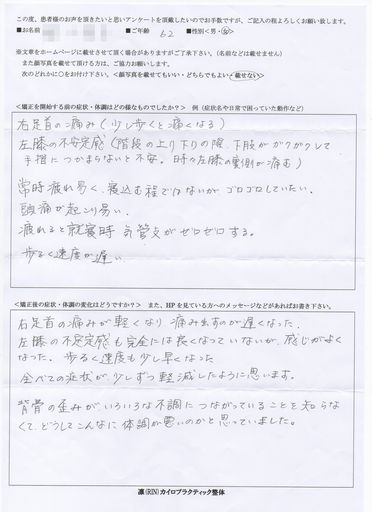 この度、患者様のお声を頂きたいと思いアンケートを頂戴したいのでお手数ですが、ご記入の程よろしくお願い致します。
■お名前 ■ご年齢 62 ■性別<男・女>
※文章をホームページに載せさせて頂く場合がありますがご了承下さい。(名前などは載せません)
また顔写真を載せて頂ける方は、ご協力お願いします。
次のどれかに○をお付け下さい。<顔写真を載せてもいい・どちらでもよい・載せない>
<矯正を開始する前の症状・体調はどの様なものでしたか?> 例(症状名や日常で困っていた動作など)
右足首の痛み(少し歩くと痛くなる)
左膝の不安定感(階段の上り下りの際、下肢がガクガクして
手摺につかまらないと不安。時々左膝の裏側が痛む)
常時疲れ易く、寝込む程ではないがゴロゴロしていたい。
頭痛が起こり易い。
疲れると就寝時気管支がゼロゼロする。
歩く速度が遅い
<矯正後の症状・体調の変化はどうですか?> また、HPを見ている方へのメッセージなどがあればお書き下さい。
右足首の痛みが軽くなり、痛み出すのが遅くなった。
左膝の不安定感も完全には良くなっていないが、感じがよく
なった。歩く速度も少し早くなった
全べての症状が少しずつ軽減したように思います。
背骨の歪みがいろいろな不調につながっていることを知らな
くて、どうしてこんなに体調が悪いのかと思っていました。
凛(RIN)カイロプラクティック整体